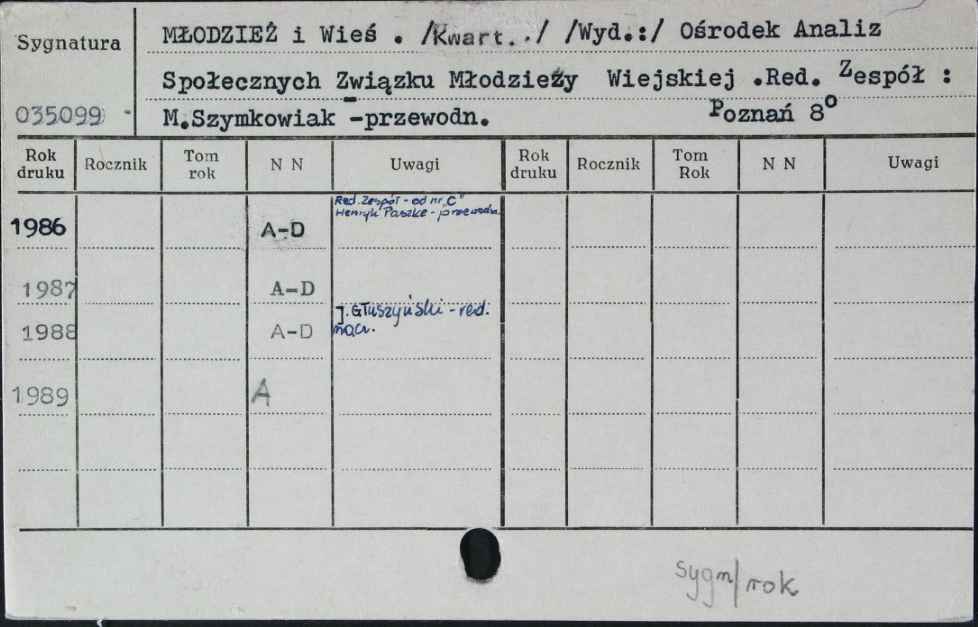 Sygnatura
MŁODZIEŻ i Wieś . /Kwart../ /Wyd.:/ Ośrodek Analiz
Społecznych Związku Młodzieży Wiejskiej .Red. Zespół :
035099 M.Szymkowiak -przewodn. Poznań 8°
Rok druku Rocznik Tom rok N N Uwagi Rok druku Rocznik Tom Rok N N Uwagi
Red. Zespół - od nr „C"
Henryk Paszke - przewodn.
1986 A-D
1987 A-D
J. Głuszyński - red.
1988 A-D nacz.
1989 A
sygn/rok